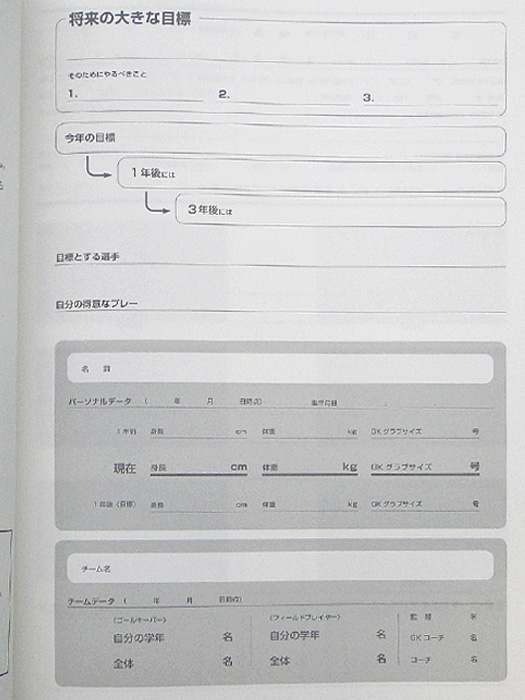 将来の大きな目標
そのためにやるべきこと
1. 2. 3.
今年の目標
1年後には
3年後には
目標とする選手
自分の得意なプレー
名 前
パーソナルデータ ( 年 月 日時点) 生年月日 . .
1年前 身長 cm 体重 kg GKグラブサイズ 号
現在 身長 cm 体重 kg GKグラブサイズ 号
1年後(目標) 身長 cm 体重 kg GKグラブサイズ 号
チーム名
チームデータ ( 年 月 日時点)
〈ゴールキーパー〉 〈フィールドプレイヤー〉 監 督 名
自分の学年 名 自分の学年 名 GKコーチ 名
全体 名 全体 名 コーチ 名